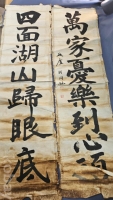 萬家憂樂到心頭
四面湖山歸眼底